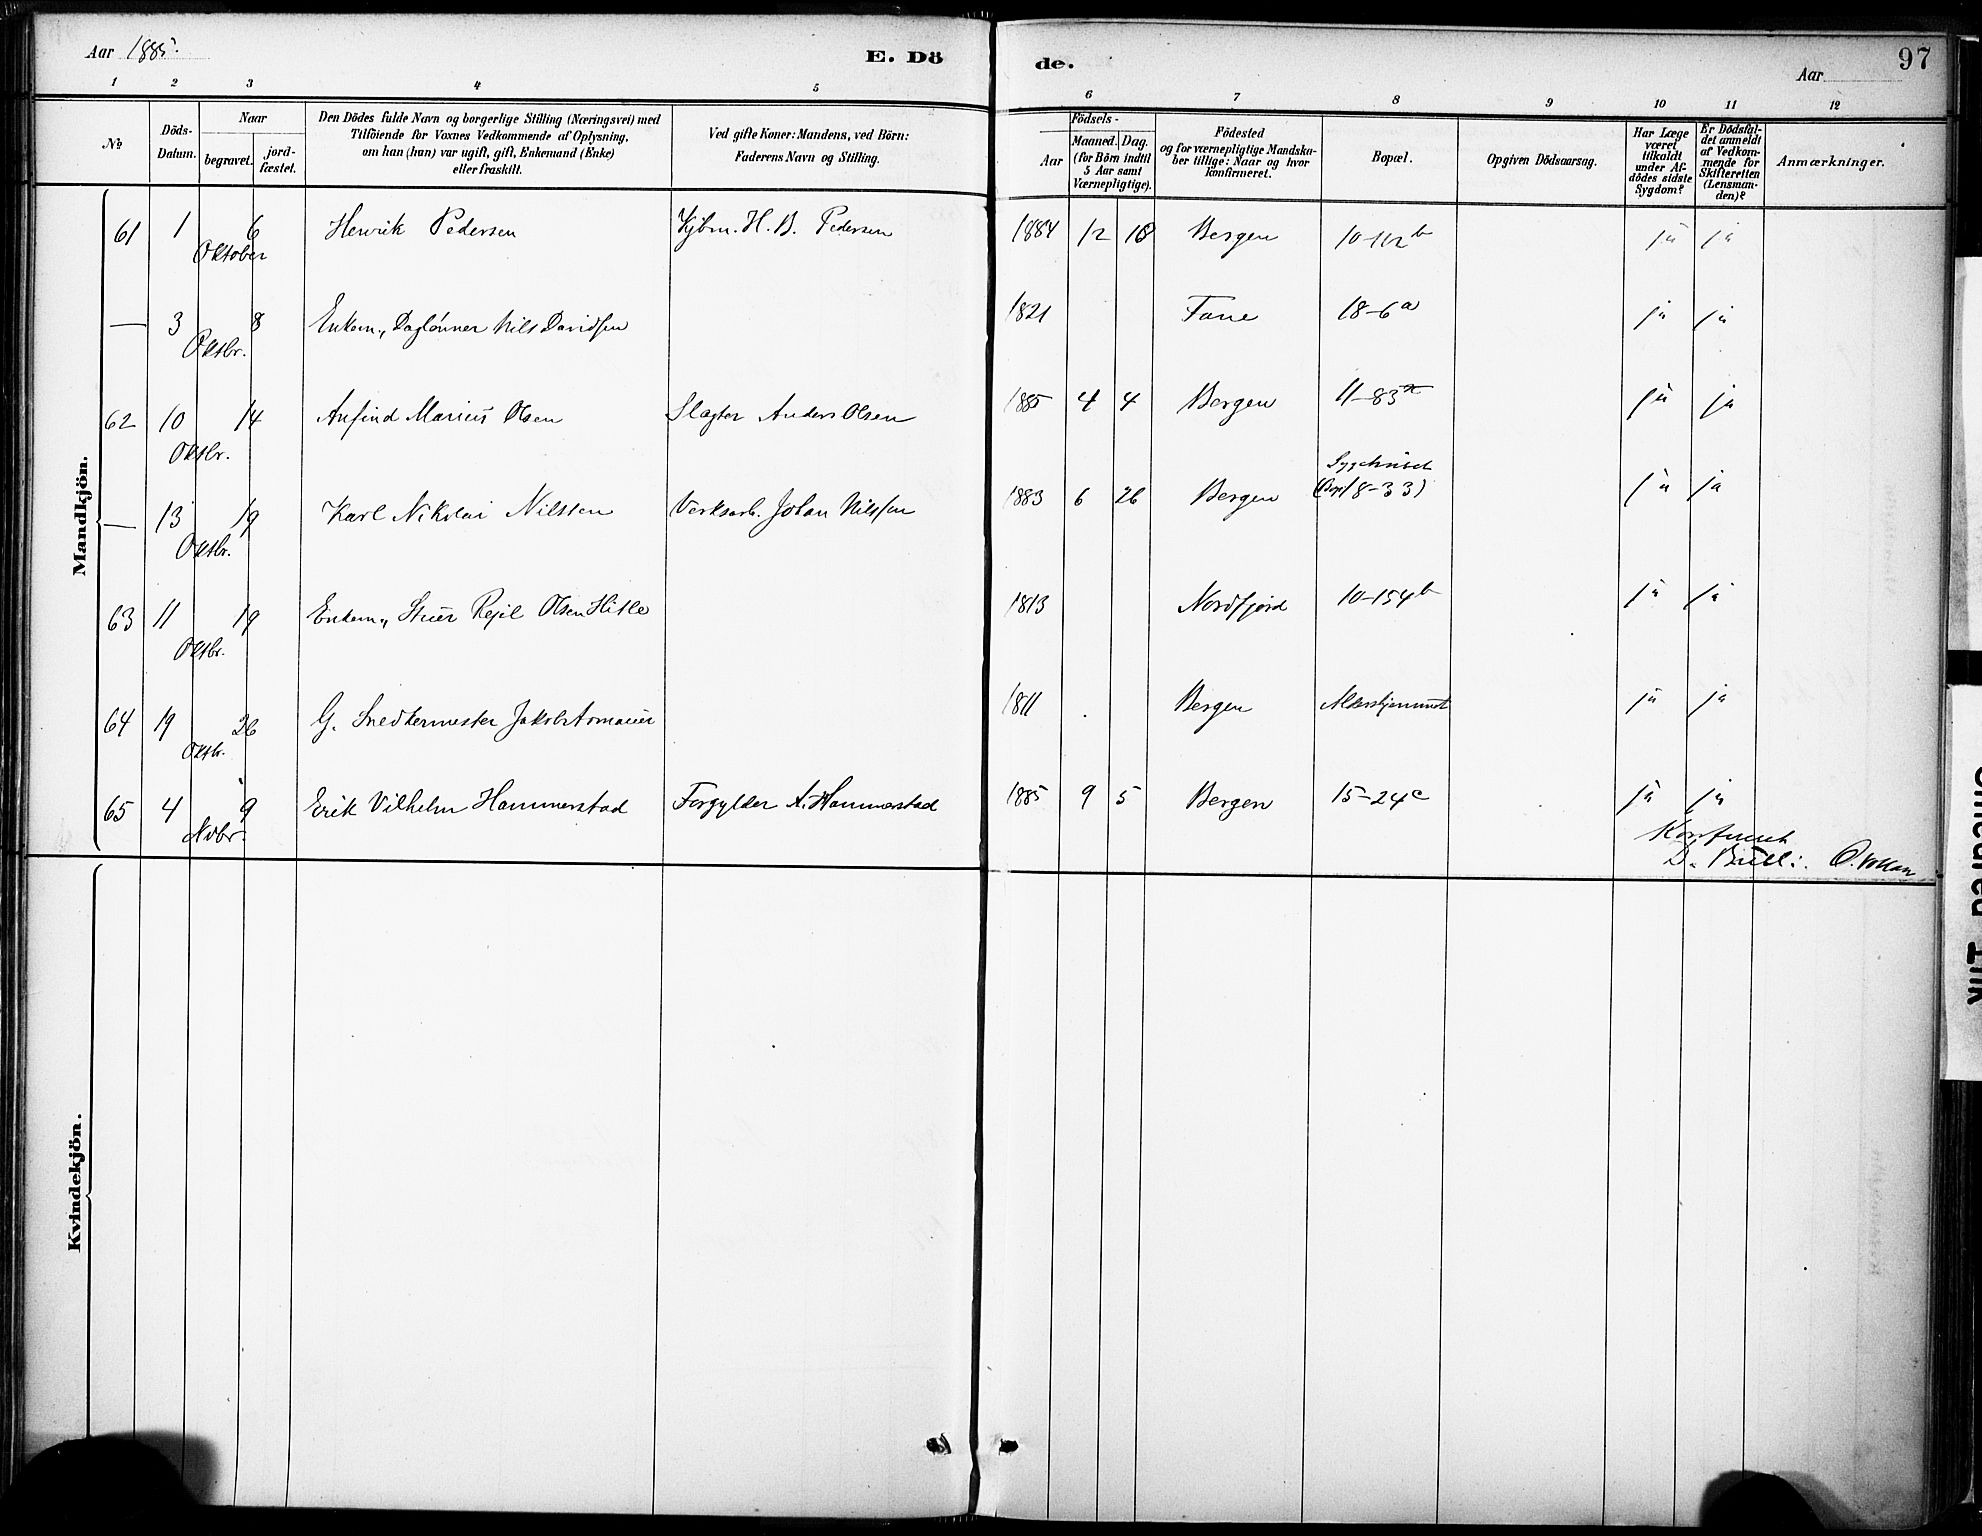 Aar 1885.
E. Dö
de.
Aar
97
1 2 3 4 5 6 7 8 9 10 11 12
No
Döds-
Datum.
Naar
begravet.
jord-
fæstet.
Den Dödes fulde Navn og borgerlige Stilling (Næringsvei) med
Tilföiende for Voxnes Vedkommende af Oplysning,
om han (hun) var ugift, gift, Enkemand (Enke)
eller fraskilt.
Ved gifte Koner: Mandens, ved Börn:
Faderens Navn og Stilling.
Födsels-
Aar
Maaned. Dag.
(for Börn indtil
5 Aar samt
Værnepligtige).
Födested
og for værnepligtige Mandska-
ber tillige: Naar og hvor
konfirmeret.
Bopæl.
Opgiven Dödsaarsag.
Har Læge
været
tilkaldt
under Af-
dödes sidste
Sygdom?
Er Dödsfal-
det anmeldt
af Vedkom-
mende for
Skifteretten
(Lensman-
den)?
Anmærkninger.
Mandkjön.
61 1 6 Henrik Pedersen Kjbm. H. B. Pedersen 1884 12 18 Bergen 10-112b ja ja
Oktober
— 3 8 Enkem., Daglönner Nils Davidsen 1821 Fane 18-6a ja ja
Oktbr.
62 10 14 Anfind Marius Olsen Slagter Anders Olsen 1885 4 4 Bergen 11-83a ja ja
Oktbr.
Sygehuset
— 13 19 Karl Nikolai Nilsen Verksarb. Johan Nilssen 1883 6 26 Bergen (Bop. 18-33) ja ja
Oktbr.
63 11 19 Enkem., Stuer Rejel Olsen Hitle 1813 Nordfjord 10-154b ja ja
Oktbr.
64 19 26 G. Snedkermester Jakob 1811 Bergen Aldershjemmet ja ja
Oktbr.
65 4 9 Erik Vilhelm Hammerstad Forgylder A. Hammerstad 1885 9 5 Bergen 15-24c ja ja
Nvbr.
Konfereret
D. Bull:
Kvindekjön.